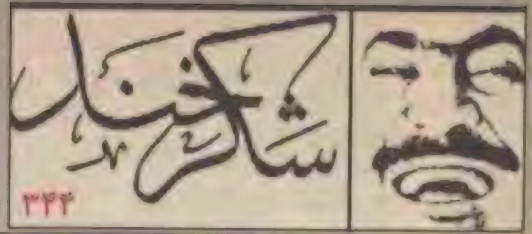 شکرخند
۳۴۴